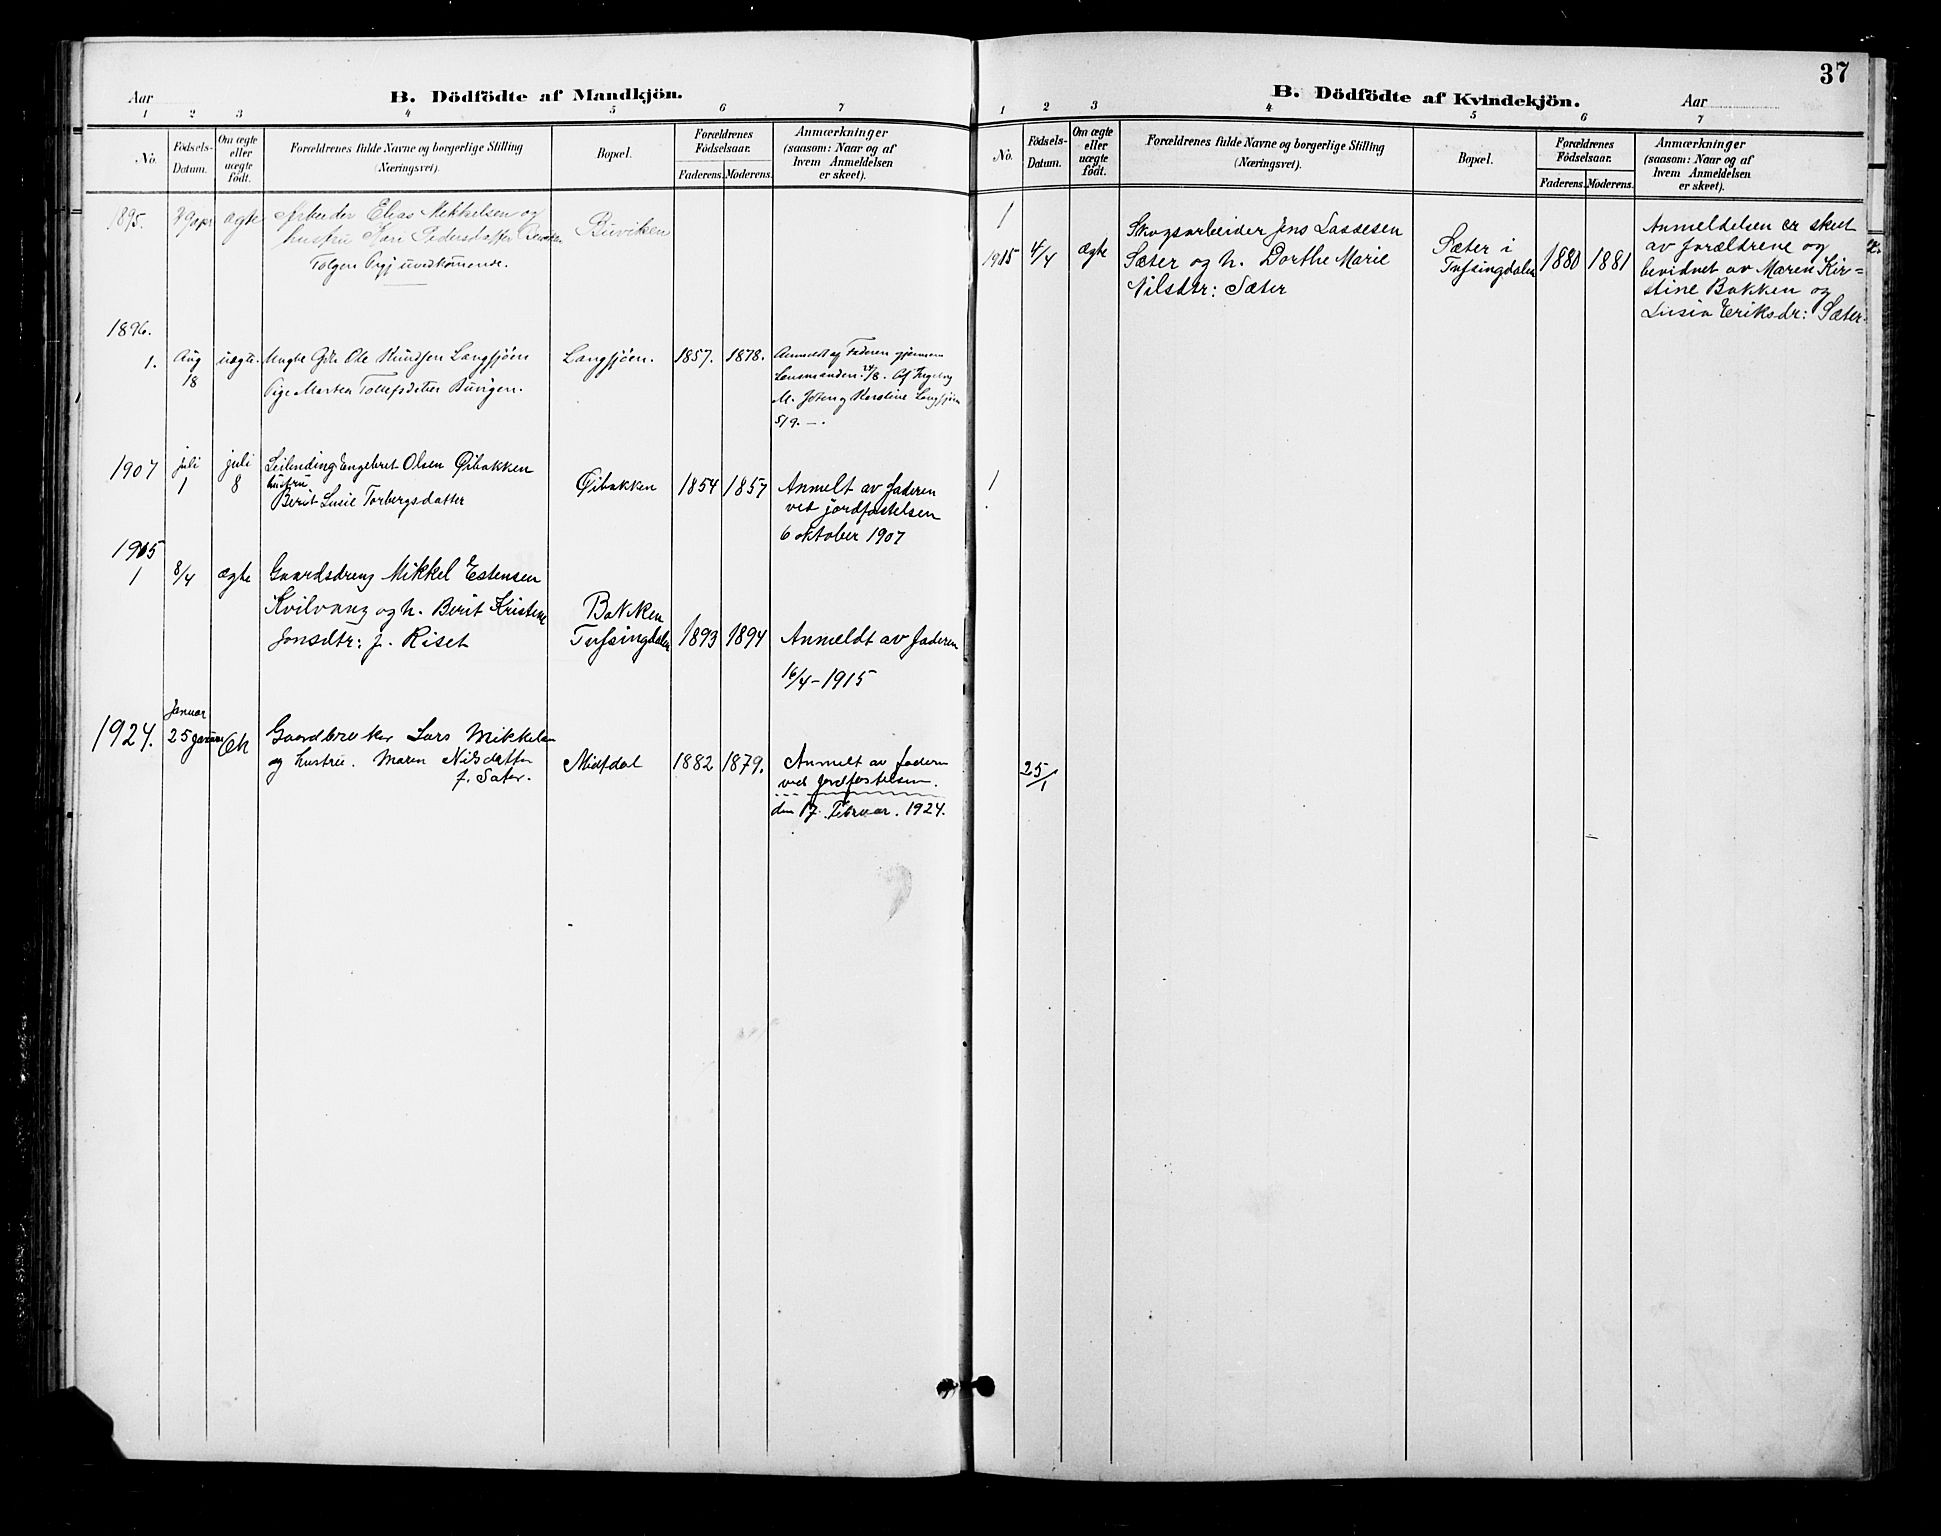 Aar
B. Dödfödte af Mandkjön.
1 2 3 4 5 6 7
No.
Födsels-
Datum.
Om ægte
eller
uægte
födt.
Forældrenes fulde Navne og borgerlige Stilling
(Næringsvei).
Bopæl.
Forældrenes
Födselsaar.
Faderens. Moderens.
Anmærkninger
(saasom: Naar og af
hvem Anmeldelsen
er skeet).
1895.
ægte
Arbeider Elias Mikkelsen og
hustru Kari Pedersdatter
Tolgen
Buviken
1896.
1.
Aug
18
uægte.
Ole Knudsen Langsjöen
Pige Marthe
Langsjöen.
1857. 1878.
Anmeldt af Faderen gjennem
Lensmanden
Karoline Langsjöen
5/9. —.
1907
juli
1
juli
8
Leilending Engebret Olsen Öibakken
hustru
Berit Lusie Torbergsdatter
Öibakken
1854 1857
Anmelt av faderen
ved jordfæstelsen
6 oktober 1907
1915
1
8/4
ægte
Gaardsdreng Mikkel Estensen
Kvilvang og h. Berit Kristine
Jonsdtr: f. Riset
Bakken
Tufsingdalen
1893 1894
Anmeldt av faderen
16/4-1915
1924.
Januar
25 januar
Gaardbruker Lars Mikkelsen
og hustru. Maren Nilsdatter
f. Sæter.
Midtdal
1882 1879.
Anmelt av faderen
ved jordfæstelsen.
den 17. Februar. 1924.
37
B. Dödfödte af Kvindekjön.
Aar
1 2 3 4 5 6 7
No.
Födsels-
Datum.
Om ægte
eller
uægte
födt.
Forældrenes fulde Navne og borgerlige Stilling
(Næringsvei).
Bopæl.
Forældrenes
Födselsaar.
Faderens. Moderens.
Anmærkninger
(saasom: Naar og af
hvem Anmeldelsen
er skeet).
1
1915
4/4
ægte
Skogsarbeider Jens Lassesen
Sæter og h. Dorthe Marie
Nilsdtr: Sæter
Sæter i
Tufsingdalen
1880 1881
Anmeldelsen er skeet
av forældrene og
bevidnet av Maren Kir=
stine Bakken og
Lusia Eriksdr: Sæter.
1
25/1